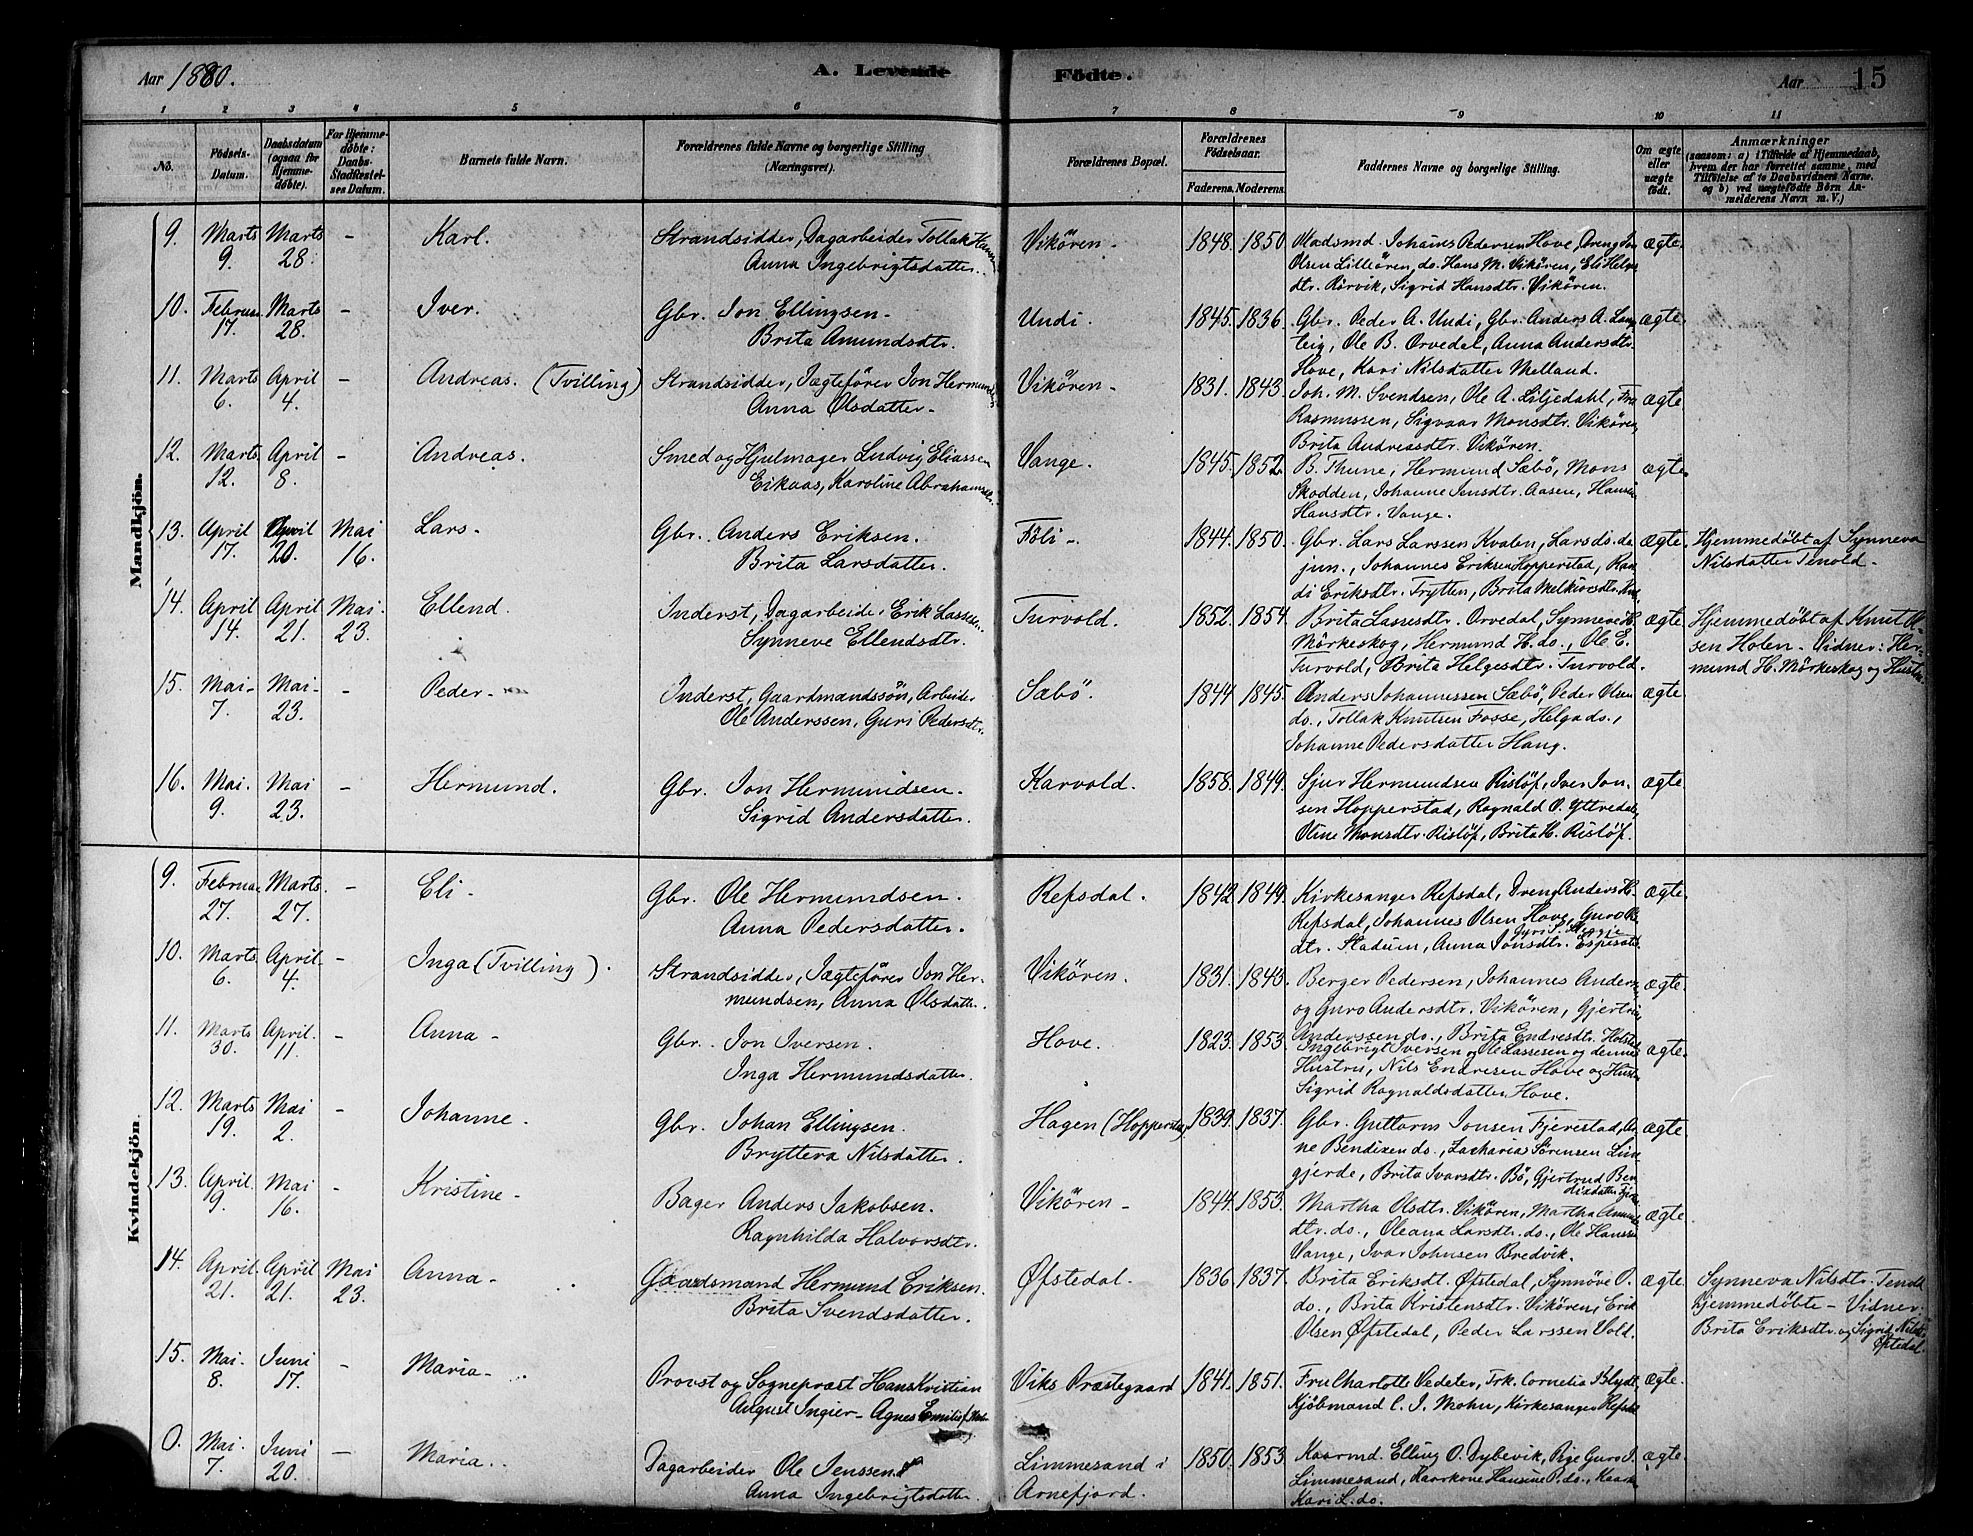 Aar 1880.
A. Levende Födte.
Aar 15
1 2 3 4 5 6 7 8 9 10 11
No.
Födsels-Datum.
Daabsdatum (ogsaa for Hjemme-döbte).
For Hjemme-döbte: Daabs-Stadfæstel-ses Datum.
Barnets fulde Navn.
Forældrenes fulde Navne og borgerlige Stilling (Næringsvei).
Forældrenes Bopæl.
Forældrenes Födselsaar.
Faderens. Moderens.
Faddernes Navne og borgerlige Stilling.
Om ægte eller uægte födt.
Anmærkninger
(saasom: a) i Tilfælde af Hjemmedaab, hvem der har forrettet samme, med Tilföielse af to Daabsvidners Navne, og b) ved uægtefödte Börn An-melderens Navn m. V.)
Mandkjön.
9. Marts 9. Marts 28. - Karl. Strandsidder, Dagarbeider Tollak
Anna Ingebrigtsdatter. Vikören. 1848. 1850. Johans Pedersen Hove, Dreng Jon
Olsen Lilleören, do. Hans M. Vikören, Eli Helges
dtr. Rörvik, Sigrid Hansdtr. Vikören. ægte.
10. Februar 17. Marts 28. - Iver. Gbr. Jon Ellingsen.
Brita Amundsdtr. Undi. 1845. 1836. Gbr. Peder A. Undi, Gbr. Anders A. Lang
teig, Ole B. Orvedal, Anna Andersdtr.
Hove, Kari Nilsdatter Melland. ægte.
11. Marts 6. April 4. - Andreas. (Tvilling) Strandsidder, Jægtefører Jon Hermundsen
Anna Olsdatter. Vikören. 1831. 1843. Joh. M. Svendsen, Ole A. Liljedahl, Fru
Rasmussen, Sigvaar Monsdtr. Vikören,
Brita Andreasdtr. Vikören. ægte
12. Marts 12. April 8. - Andreas. Smed og Hjulmager Ludvig Eliassen
Eikaas, Karoline Abrahamsdtr. Vange. 1845. 1852. B. Thune, Hermund Sæbö, Mons
Skodden, Johanne Jensdtr. Aasen,
Hansdtr. Vange. ægte.
13. April 17. April 20. Mai 16. Lars. Gbr. Anders Eriksen.
Brita Larsdatter. Föli. 1844. 1850. Gbr. Lars Larssen Kvalen, Lars do. do
jun., Johannes Eriksen Hopperstad, Ran
di Eriksdtr. Trytten, Brita ægte. Hjemmedöbt af Synneva
Nilsdatter Tenold.
14. April 14. April 21. Mai 23. Ellend. Inderst, Dagarbeider Erik Lassesen.
Synneve Ellendsdtr. Turvold. 1852. 1854. Brita Lassesdtr. Orvedal, Synneve H.
Mörkeskog, Hermund H. do., Ole E.
Turvold, Brita Helgesdtr. Turvold. ægte. Hjemmedöbt af Knut Ol
sen Holen. Vidner: Her-
mund H. Mörkeskog og Hustru.
15. Mai 7. Mai 23. - Peder. Inderst, Gaardmandssön, Arbeider
Ole Anderssen, Guri Pedersdtr. Sæbö. 1844 1845. Anders Johannessen Sæbö, Peder Olsen
do., Tollak Knutsen Fosse, Helga do.,
Johanne Pedersdatter Haug. ægte.
16. Mai 9. Mai 23. - Hermund. Gbr. Jon Hermundsen.
Sigrid Andersdatter. Karvold. 1858. 1849. Sjur Hermundsen Rislöf, Iver Jon-
sen Hopperstad, Ragnald O. Yttredal,
Oline Monsdtr. Rislöf, Brita H. Rislöf. ægte.
Kvindekjön.
9. Februar 27. Marts 27. - Eli. Gbr. Ole Hermundsen.
Anna Pedersdatter. Refsdal. 1842 1849. Kirkesanger Refsdal, Dreng Anders H.
Refsdal, Johannes Olsen Hove, Guro
dtr. Stadium, Anna Jonsdtr. ægte.
10. Marts 6. April 4. - Inga (Tvilling). Strandsidder, Jægtefører Jon Her-
mundsen, Anna Olsdatter. Vikören. 1831. 1843. Berger Pedersen, Johannes Anders
og Guro Andersdtr. Vikören, Gjertrud
Anderssen do., Brita Endresdtr. ægte.
11. Marts 30. April 11. - Anna. Gbr. Jon Iversen.
Inga Hermundsdatter. Hove. 1823. 1853. Ingebrigt Iversen og Ole Lassesen og dennes
Hustru, Nils Endresen Hove og Hustru
Sigrid Ragnaldsdatter Hove. ægte.
12. Marts 19. Mai 2. - Johanne. Gbr. Johan Ellingsen.
Bryttera Nilsdatter. Hagen (Hopperstad) 1839. 1837. Gbr. Guttorm Jonsen Fjerestad,
ne Bendixen do., Zacharia Sörensen Lim
gjerde, Brita Ivarsdtr. Bö, Gjertrud Ben
dixdatter ægte.
13. April 9. Mai 16. - Kristine. Bager Anders Jakobsen.
Ragnhilda Halvorsdtr. Vikören. 1844. 1853. Martha Olsdtr. Vikören, Martha
dtr. do., Oleana Larsdtr. do., Ole Hanssen
Vange, Ivar Johnsen Bredvik. ægte.
14. April 21. April 21. Mai 23. Anna. Gaardsmand Hermund Eriksen.
Brita Svendsdatter. Öfstedal. 1836. 1837. Brita Eriksdt. Öfstedal, Synnöve O.
do., Brita Kristensdtr. Vikören, Erik
Olsen Öfstedal, Peder Larssen Vold. ægte. Synneva Nilsdtr. Tenold
hjemmedöbte. Vidner:
Brita Eriksdtr. og Sigrid Nilsdtr.
Öfstedal.
15. Mai 8. Juni 17. - Maria. Provst og Sognepræst Hans Kristian
August Ingier. Agnes Emilie f. Viks Præstegaard 1841. 1851. Fru Charlotte Vedeler, Frk. Cornelia Blydt,
Kjöbmand C. J. Mohn, Kirkesanger Refsdal ægte.
0. Mai 7. Juni 20. - Maria. Dagarbeider Ole Jenssen
Anna Ingebrigtsdatter. Limmesand i
Arnefjord. 1850. 1853. Kaarmd. Elling O. Dybevik, Pige Guro J.
Limmesand, Kaarkone Hansine P. do., Kaark.
Kari L. do. ægte.